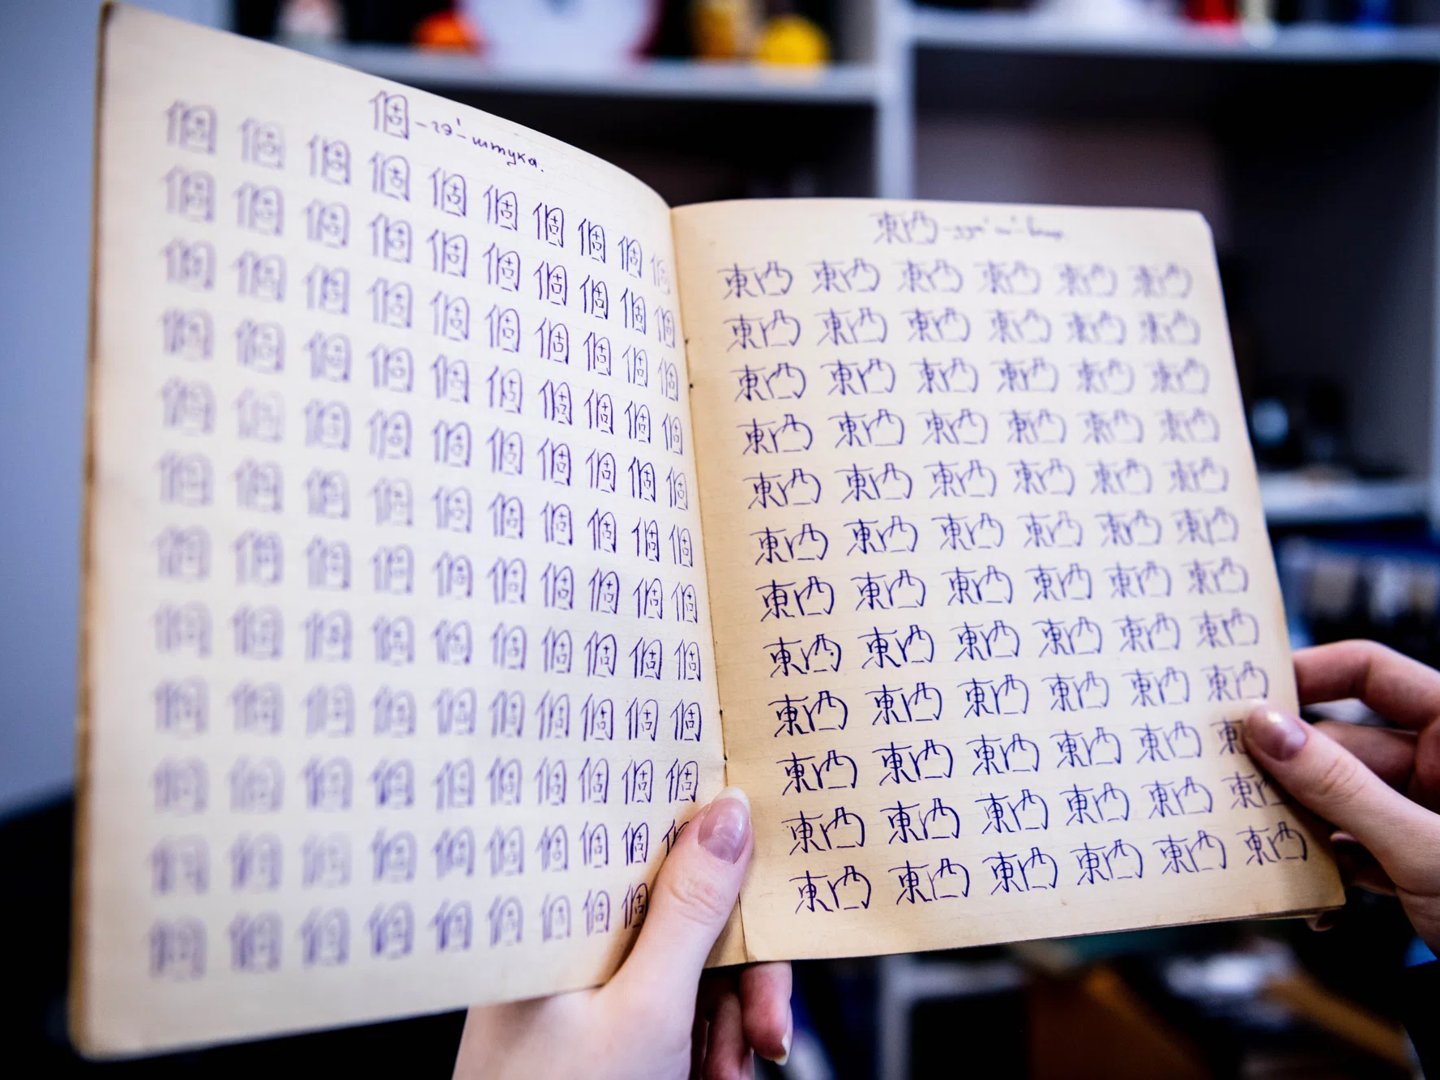 個 - гэ` - штука.
個 個 個 個 個 個 個 個 個 個
個 個 個 個 個 個 個 個 個 個
個 個 個 個 個 個 個 個 個 個
個 個 個 個 個 個 個 個 個 個
個 個 個 個 個 個 個 個 個 個
個 個 個 個 個 個 個 個 個 個
個 個 個 個 個 個 個 個 個 個
個 個 個 個 個 個 個 個 個 個
個 個 個 個 個 個 個 個 個 個
個 個 個 個 個 個 個 個 個 個
個 個 個 個 個 個 個 個 個 個
個 個 個 個 個 個 個 個 個
東西
東西 東西 東西 東西 東西 東西
東西 東西 東西 東西 東西 東西
東西 東西 東西 東西 東西 東西
東西 東西 東西 東西 東西 東西
東西 東西 東西 東西 東西 東西
東西 東西 東西 東西 東西 東西
東西 東西 東西 東西 東西 東西
東西 東西 東西 東西 東西 東西
東西 東西 東西 東西 東西 東西
東西 東西 東西 東西 東西 東
東西 東西 東西 東西 東西 東
東西 東西 東西 東西 東西 東西